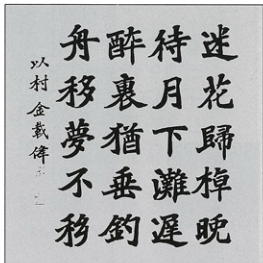 迷花歸棹晩
待月下灘遲
醉裏猶垂釣
舟移夢不移
以村 金載偉